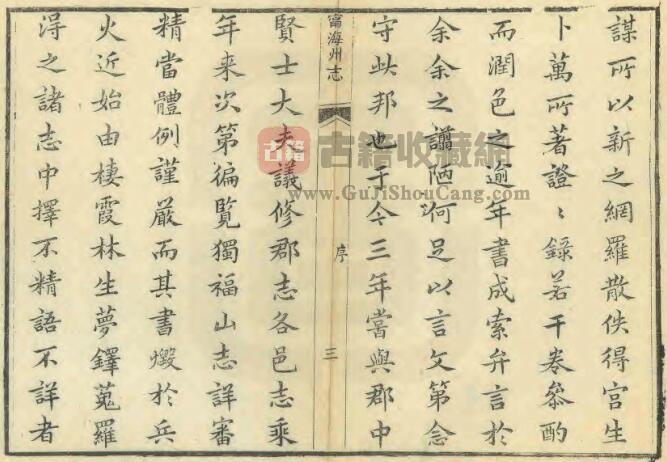 謀所以新之網羅散佚得宮生
卜萬所著證〻錄若干卷叅酌
而潤色之逾年書成索弁言於
余余之謭陋何足以言文第念
守此邦也于今三年當與郡中
甯海州志
序
三
賢士大夫議修郡志各邑志乘
年来次第徧覧獨福山志詳審
精當體例謹嚴而其書燬於兵
火近始由棲霞林生夢鐸蒐羅
淂之諸志中擇不精語不詳者
古籍
古籍收藏網
www.GuJiShouCang.com